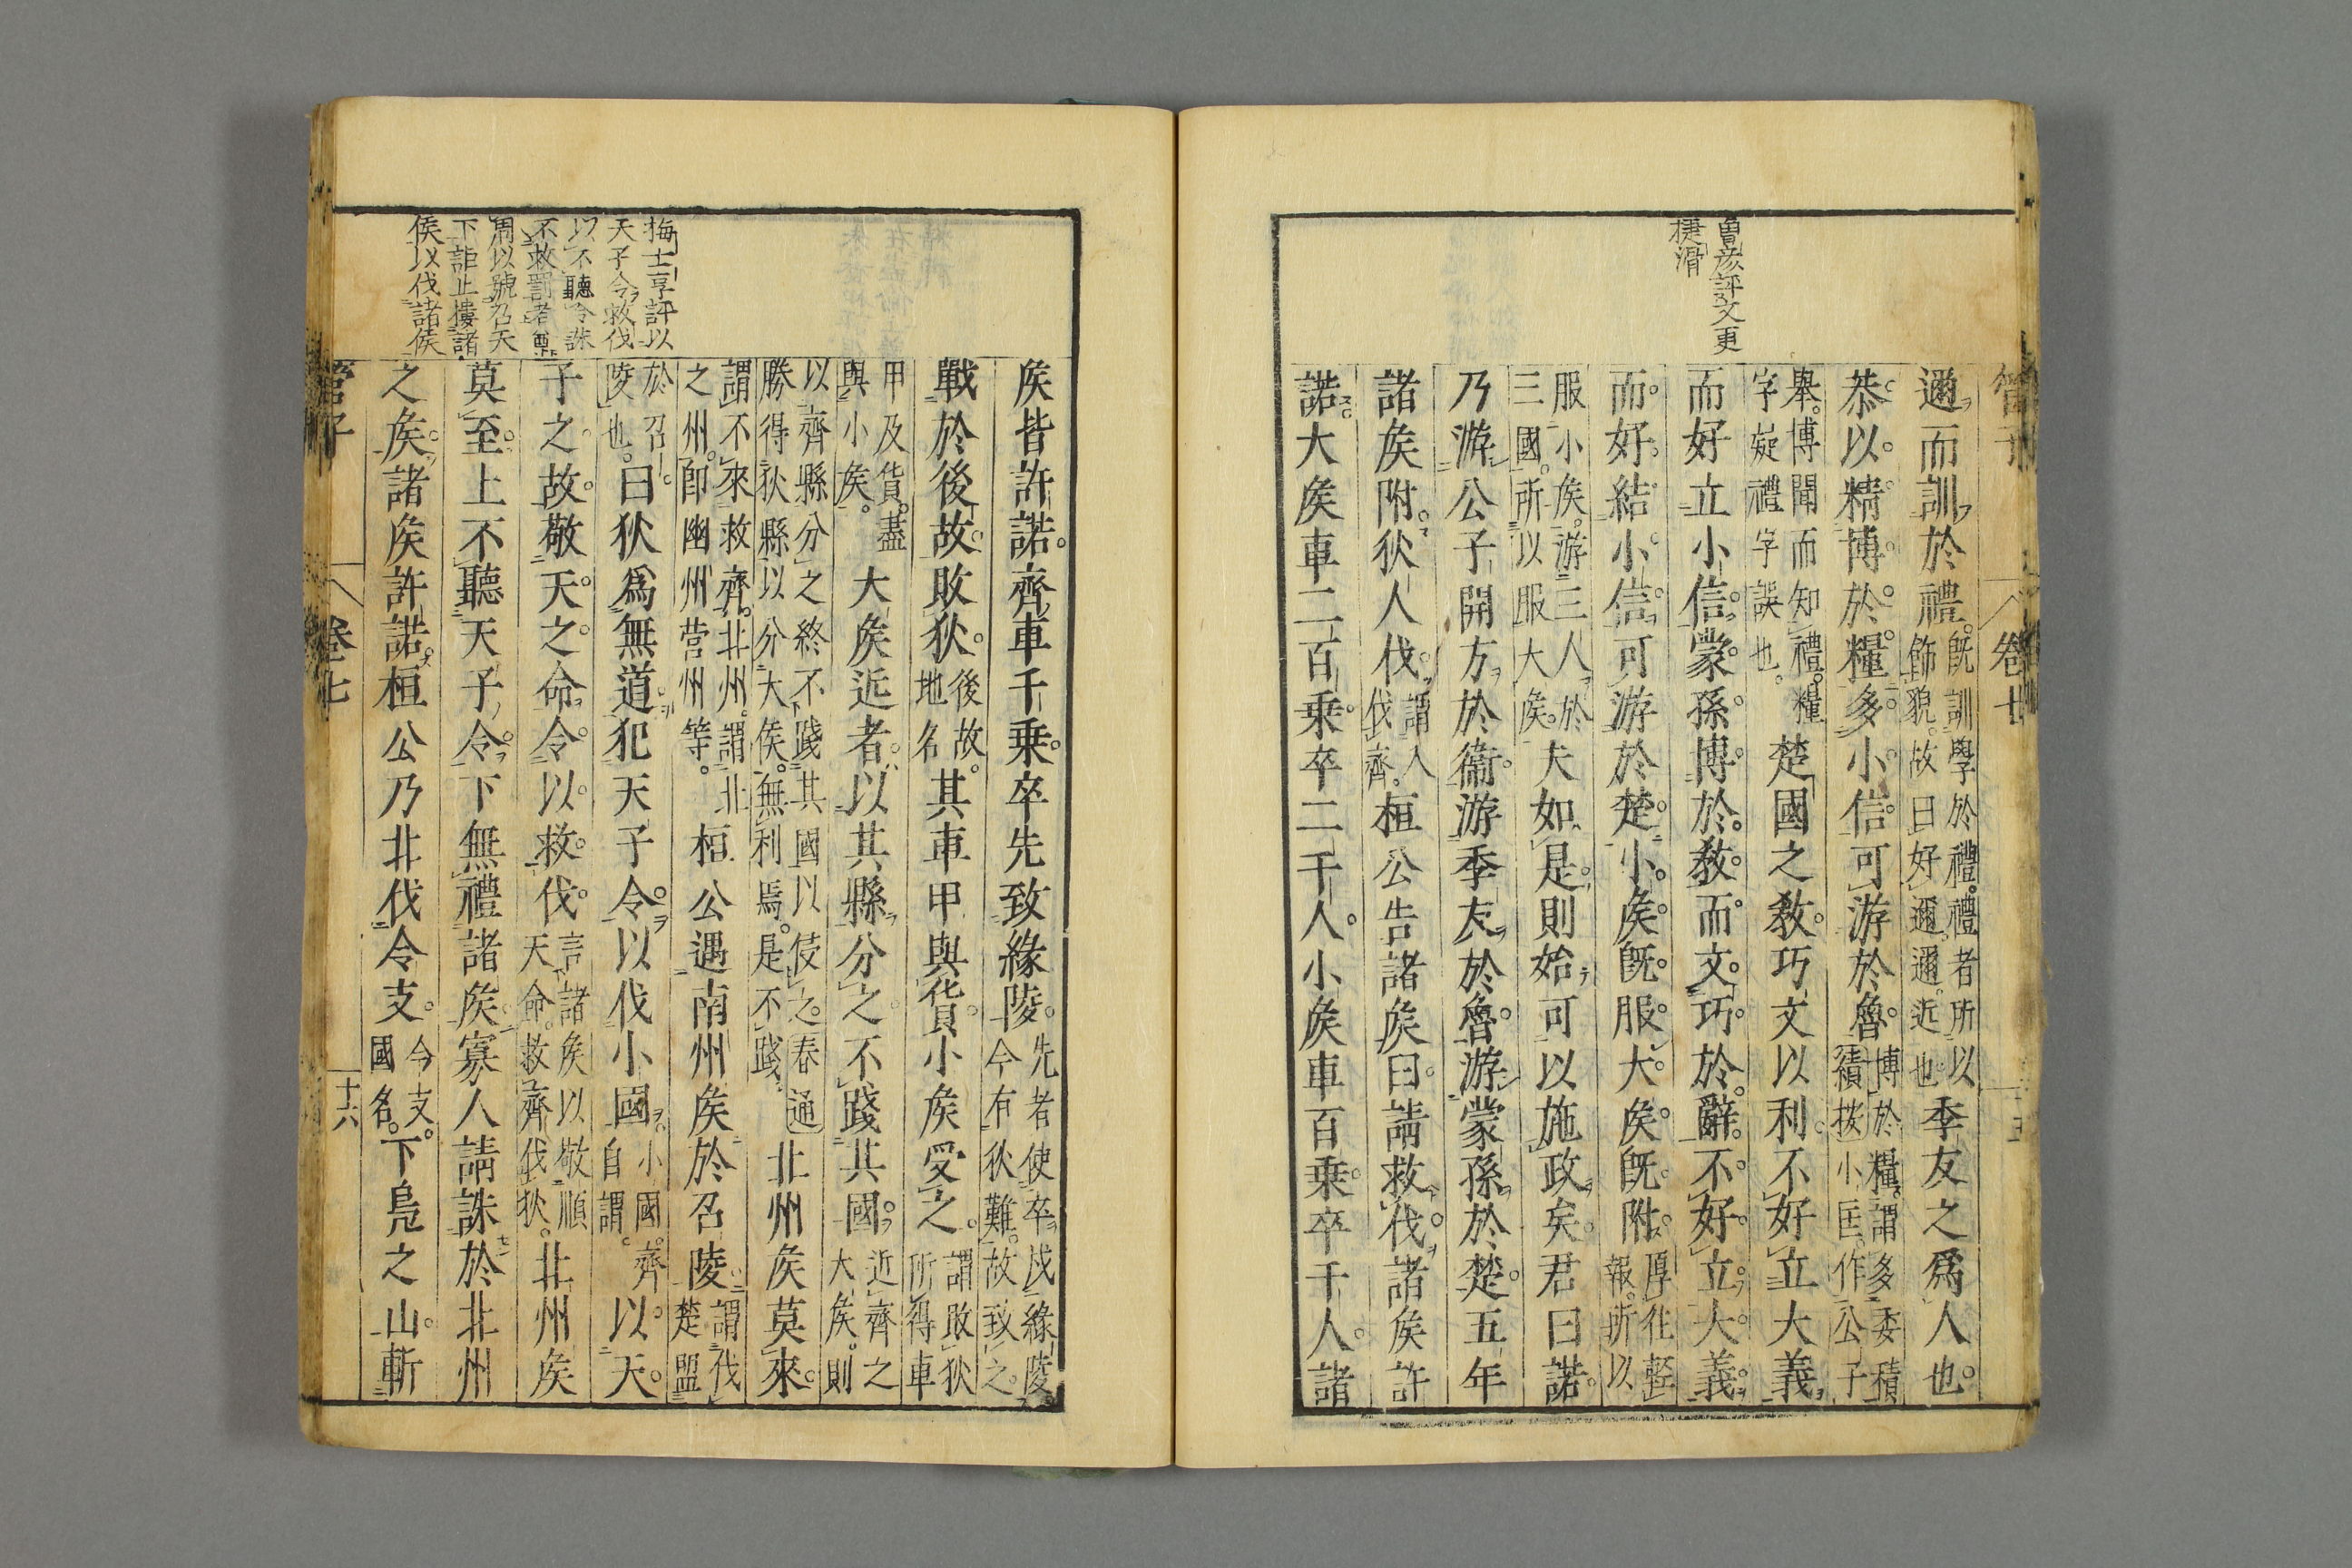 管子
卷七
十五
魯彦評文更
捷滑
邇而訓於禮既訓學於禮禮者所以飾貌故曰好邇邇近也季友之爲人也
恭以精博於糧多小信可游於魯博於糧謂多委積積按小匡作公子
舉博聞而知禮糧字疑禮字誤也楚國之敎巧文以利不好立大義
而好立小信蒙孫博於敎而文巧於辭不好立大義
而好結小信可游於楚小矦既服大矦既附厚往輕報所以
服小矦游三人於三國所以服大矦夫如是則始可以施政矣君曰諾
乃游公子開方於衞游季友於魯游蒙孫於楚五年
諸矦附狄人伐謂入伐齊桓公告諸矦曰請救伐諸矦許
諾大矦車二百乗卒二千人小矦車百乗卒千人諸
矦皆許諾齊車千乗卒先致緣陵先者使卒戍緣陵今有狄難故致之
戰於後故敗狄後故地名其車甲與貨小矦受之謂敗狄所得車
甲及貨盡與小矦大矦近者以其縣分之不踐其國近齊之大矦則
以齊縣分之終不踐其國以伎之春通勝得狄縣以分大侯無利焉是不踐北州矦莫來
謂不來救齊北州謂北之州即幽州营州等桓公遇南州矦於召陵謂伐楚盟
於召陵也曰狄爲無道犯天子令以伐小國小國齊自謂以天
子之故敬天之命令以救伐言諸矦以敬順天命救齊伐狄北州矦
莫至上不聽天子令下無禮諸矦寡人請誅於北州
之矦諸矦許諾桓公乃北伐令支令支國名下鳬之山斬
梅士享評以
天子令救伐
以不聽令誅
不救罰者
周以號召天
下詎止摟諸
侯以伐諸侯
管子
卷七
十六